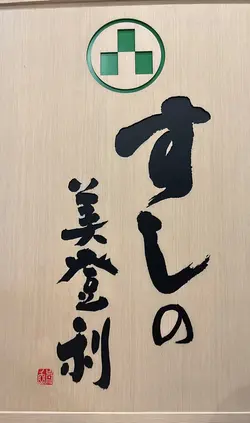 すしの
美登利